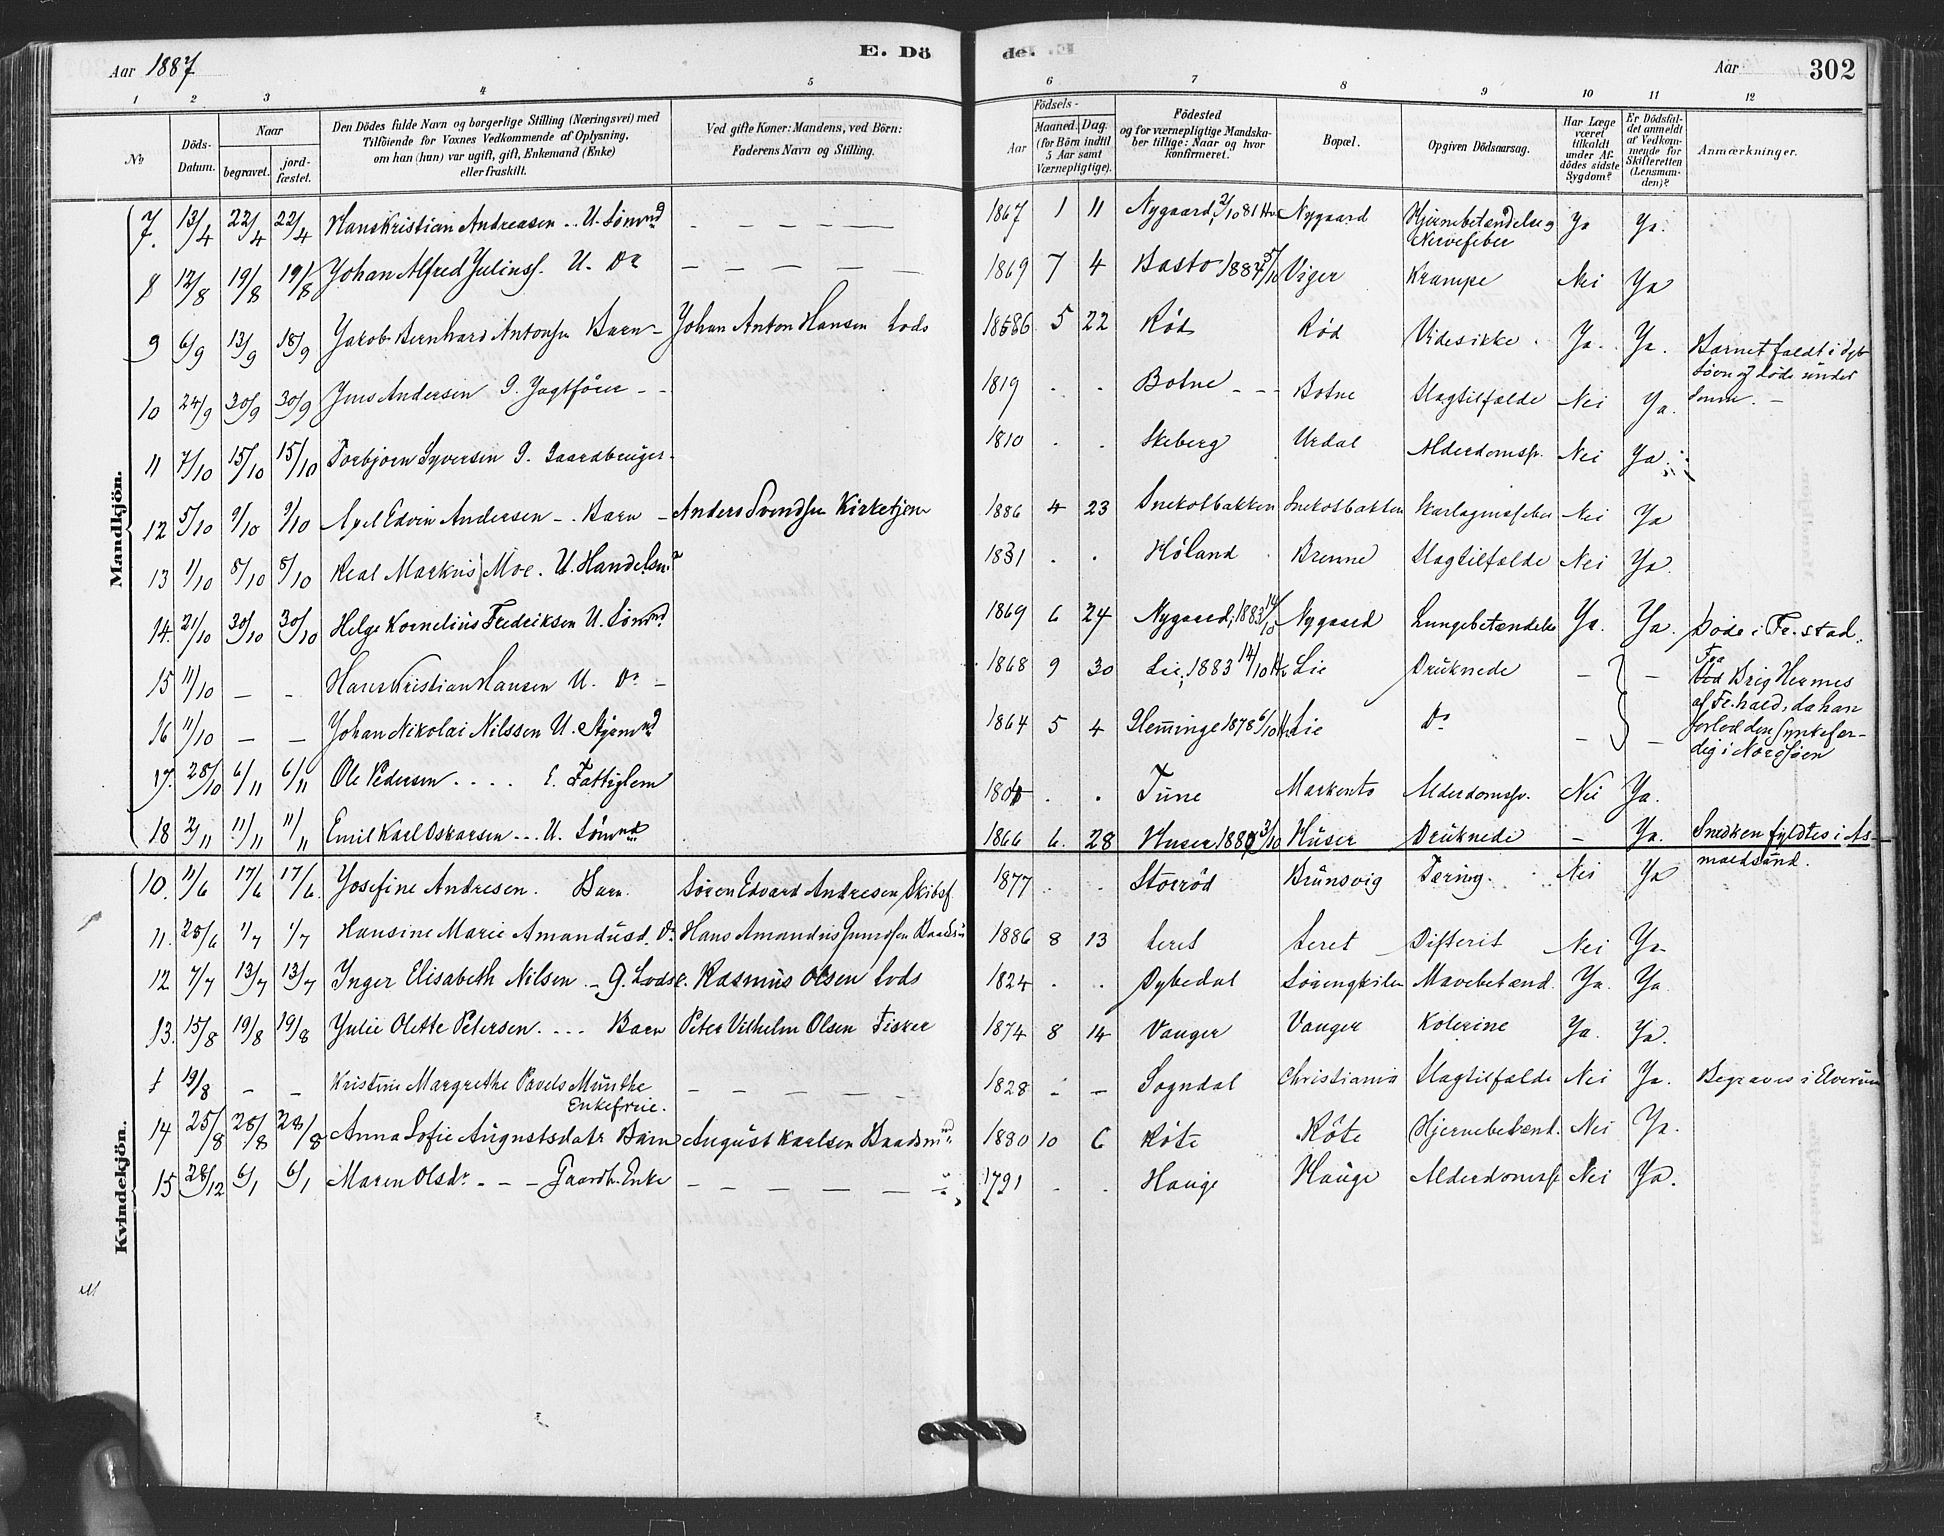 Aar 1887
E. Dö
de.
Aar
302
1 2 3 4 5 6 7 8 9 10 11 12
No
Döds-Datum.
Naar
begravet.
jord-fæstet.
Den Dödes fulde Navn og borgerlige Stilling (Næringsvei) med
Tilföiende for Voxnes Vedkommende af Oplysning,
om han (hun) var ugift, gift, Enkemand (Enke)
eller fraskilt.
Ved gifte Koner: Mandens, ved Börn:
Faderens Navn og Stilling.
Födsels-
Aar
Maaned. Dag.
(for Börn indtil
5 Aar samt
Værnepligtige).
Födested
og for værnepligtige Mandska-
ber tillige: Naar og hvor
konfirmeret.
Bopæl.
Opgiven Dödsaarsag.
Har Læge
været
tilkaldt
under Af-
dödes sidste
Sygdom?
Er Dödsfal-
det anmeldt
af Vedkom-
mende for
Skifteretten
(Lensman-
den)?
Anmærkninger.
Mandkjön.
7. 13/4 22/4 22/4 Hans Kristian Andreasen .. U. Sömnd — — — — 1867 1 11 Nygaard, 2/10 81 Hv Nygaard Hjernebetændelse og Nervefeber Ja Ja.
8 12/8 19/8 19/8 Johan Alfred Juliuss. U. Do — — — — 1869 7 4 Basto 1884 5/10 Viger Krampe Nei Ja
9 6/9 13/9 18/9 Jakob Bernhard Antonsen Barn — Johan Anton Hansen Lods 1886 5 22 Röd Röd Videsikke. Ja. Ja. Barnet faldt i
Söen og döde under
10 24/9 30/9 30/9 Jens Andersen G. Jagtförer - - 1819 . . Botne - - - Botne Slagtilfælde Nei Ja.
11 7/10 15/10 15/10 Torbjörn Syversen G. Gaardbruger. 1810 . . Skeberg Urdal Alderdomssv. Nei Ja.
12 5/10 9/10 9/10 Axel Edvin Andersen — .. Barn — Anders Svendsen Kirketjener 1886 4 23 Snekotbakken Snekotbakken Skarlagensfeber Nei Ja
13 1/10 5/10 5/10 Real Markus Moe. U. Handelsm. 1831 . . Höland Brenne Slagtilfælde Nei Ja.
14. 21/10 30/10 30/10 Helge Kornelius Fredriksen U. Sömnd 1869 6 24 Nygaard, 1883 14/10 Nygaard Lungebetændelse Ja. Ja. Döde i Fr.stad.
15 11/10 — — Hans Kristian Hansen U. Do — 1868 9 30 Lie, 1883 14/10 Hv Lie Druknede — — Fra
Brig Hermes
af Fr.hald, da han
forlod den synkefær-
dig i Nordsöen
16 11/10 — — Johan Nikolai Nilssen U. Styrmnd 1864 5 4 Glemminge 1878 6/10 Lie Do — —
17. 28/10 6/11 6/11 Ole Pedersen . . . . E. Fattiglem . . Tune Markento Alderdomssv. Nei Ja.
18 2/11 11/11 11/11 Emil Karl Oskarsen - - . U. Sömnd 1866 6. 28 Huser, 3/10 Huser Druknede — Ja. Snedken fyldtes i As-
maldsund.
Kvindekjön.
10. 11/6 17/6 17/6 Josefine Andresen. Barn. Sören Edvard Andresen Skibsf. 1877 . . Storröd Brunsvig Tæring. Nei Ja
11. 25/6 1/7 1/7 Hansine Marie Amandusd. Do Hans Amandus Baadsm 1886 8 13 Leret Leret Difterit Nei Ja
12 7/7 13/7 13/7 Inger Elisabeth Nilsen .. G. Lodse. Rasmus Olsen Lods 1824 . . Dybedal Lövengkilen Mavebetænd. Ja. Ja.
13. 15/8 19/8 19/8 Julie Olette Petersen. . . . Barn Peter Vilhelm Olsen Fisker 1874 8 14 Vauger Vauger Kolerine Ja. Ja.
19/8 — — Kristine Margrethe Pavels Munthe
Enkefrue. — — — — — 1828 — — Sogndal Christiania Slagtilfælde Nei Ja. Begraves i Elverum
14 25/8 28/8 28/8 Anna Sofie Augustsdatr Barn August Karlsen Baadsmnd 1880 10 6 Köte Köte Hjernebetænd. Nei Ja.
15 28/12 6/1 6/1 Maren Olsdr - - - Gaardb. Enke — — — — — 1791 . . Hauge Hauge Alderdomssv. Nei Ja.